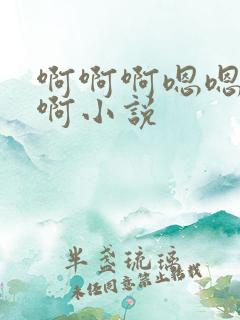 啊啊啊嗯嗯
啊小说
半盏琉璃
未经同意禁止转载